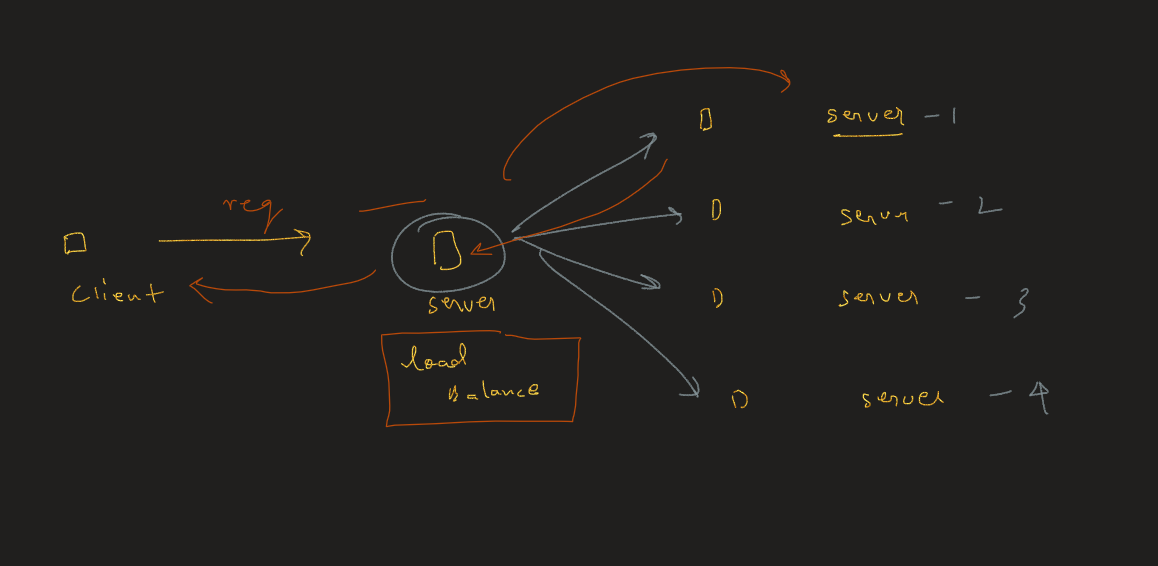 req
client
server
load
Balance
server - 1
server - 2
server - 3
server - 4